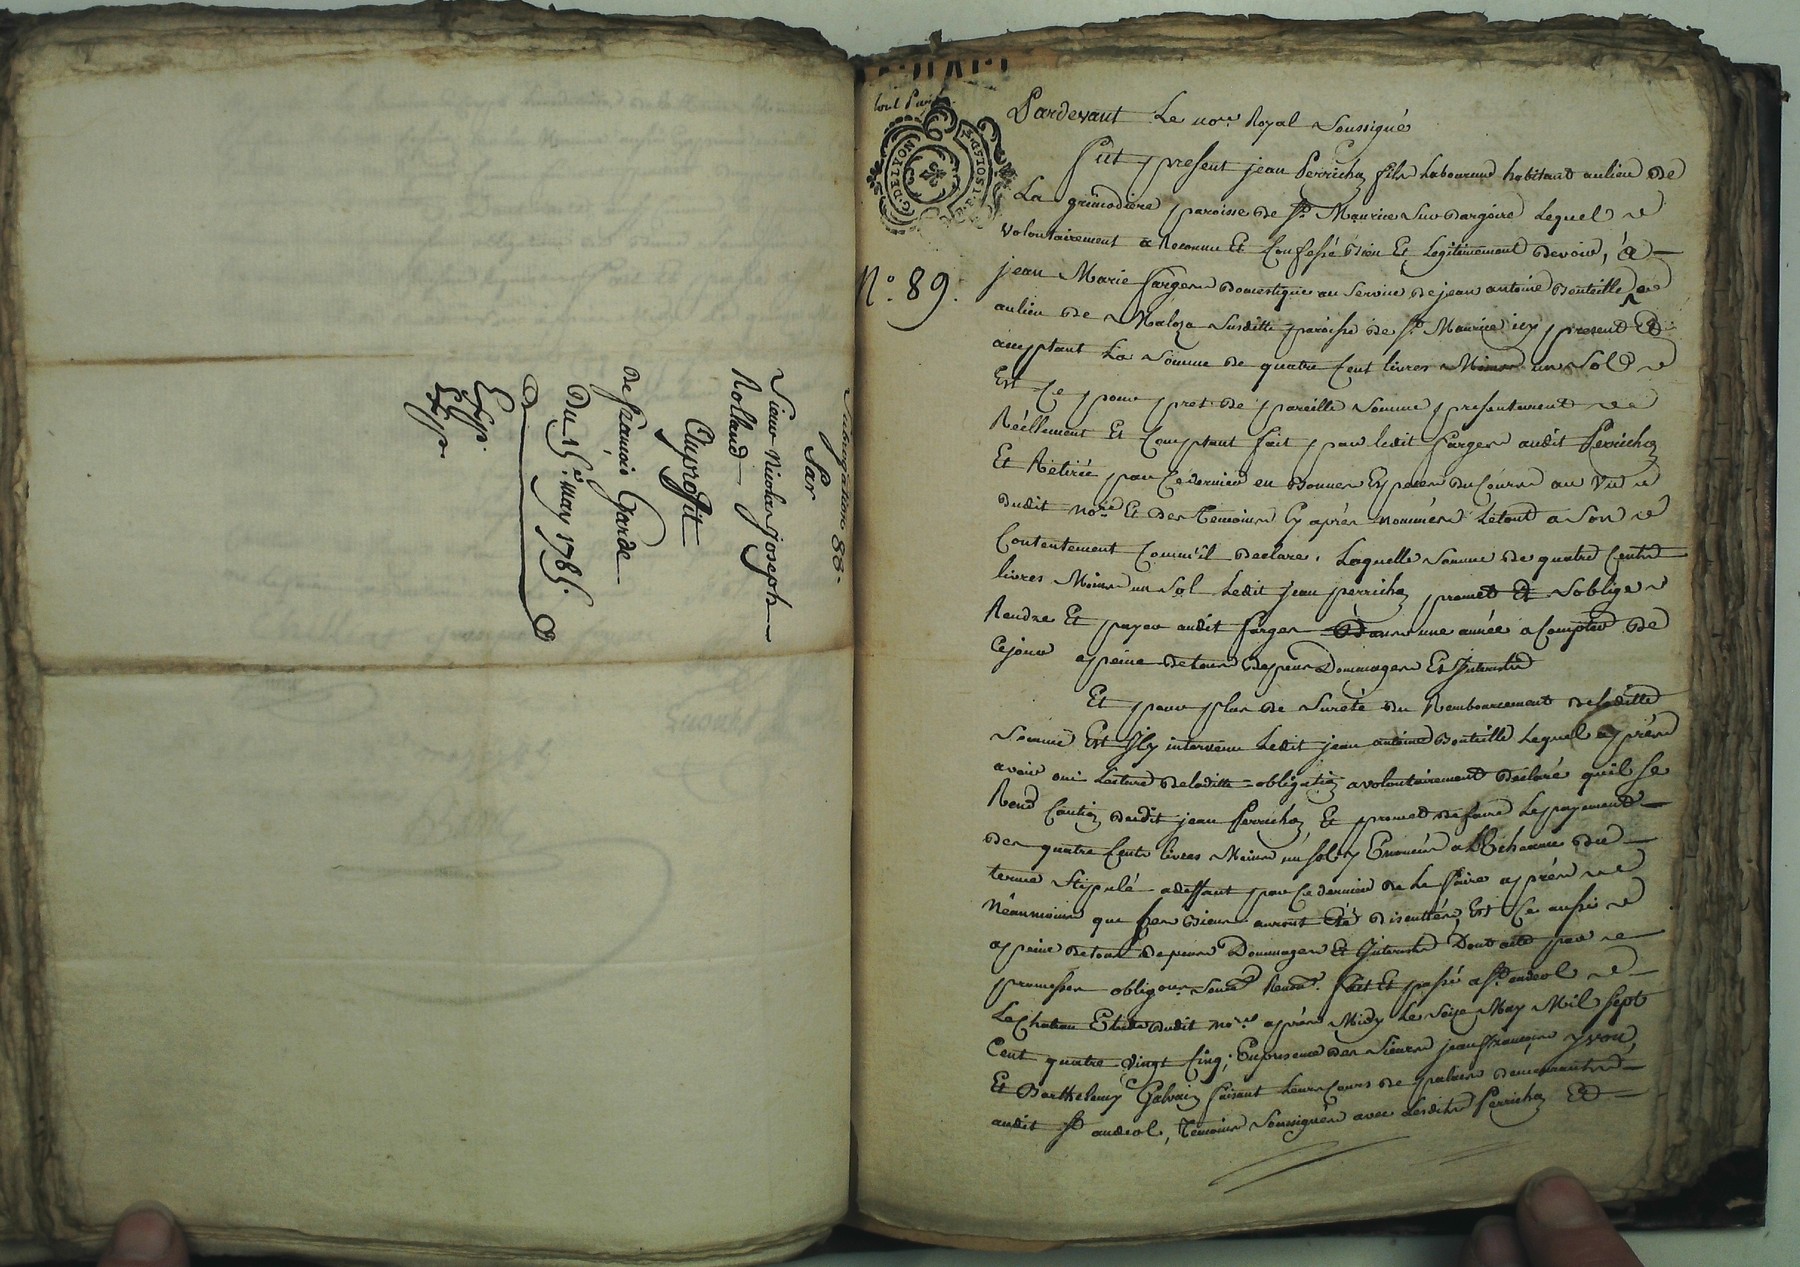 Subrogation 88.
Par
Sieur Nicolas Joseph
Rolland
Auproffit
de françois Garde
Du 15e. may 1785.
Exp.
Exp.
G. DE LYON
Pardevant Le nore. Royal Soussigné
N°. 89.
Fut present jean Perrichon fils Laboureur habitant au lieu de
La grimodiere paroisse de St. Maurice Sur Dargoire Lequel
volontairement a Reconnu Et Confessé Bien Et Legitimement Devoir, à
jean Marie farges Domestique au Service de jean antoine Bouteille
au lieu de Maloza Susditte paroisse de St. Maurice icy present Et
acceptant La Somme de quatre Cent livres Moins un Sol
Est Ce pour pret de pareille Somme presentement
Réellement Et Comptant fait par ledit farges audit Perrichon
Et Retiré par Ce dernier en Bonnes Especes Du Cours au Vu
dudit nore. Et des Temoins Cy après nommés Le tout a Son
Contentement Comm'il Declare. Laquelle Somme de quatre Cents
livres Moins un Sol Ledit jean perrichon promet Et S'oblige
Rendre Et payer audit farges Dans une année a Compter de
Cejour a peine de tous Depens Dommages Et Interests
Et pour plus de Sureté du Remboursement de laditte
Somme Est Icy intervenu Ledit jean antoine Bouteille Lequel après
avoir oui Lecture de laditte obligation a volontairement Déclaré quil Se
Rend Caution dudit jean Perrichon Et promet de faire Le payement
des quatre Cents livres Moins un Sol y Enoncés a L'Echeance du
terme Stipulé a deffaut par Ce dernier de Le faire après
Néanmoins que Ses Biens auront été discuttés, Est Ce aussi
a peine de tous depens Dommages Et Interests Dont acte par
promesses obligons. Soums. Renons. Fait Et passé a St. andeol
Le Chateau Etude dudit nore. après Midy Le Seize May Mil Sept
Cent quatre vingt Cinq, En presence des Sieurs jean françois yvon,
Et Barthelemy Galvain faisant Leurs Cours de palais demeurants
audit St. andeol, Temoins Soussignés avec Lesdits Perrichon Et